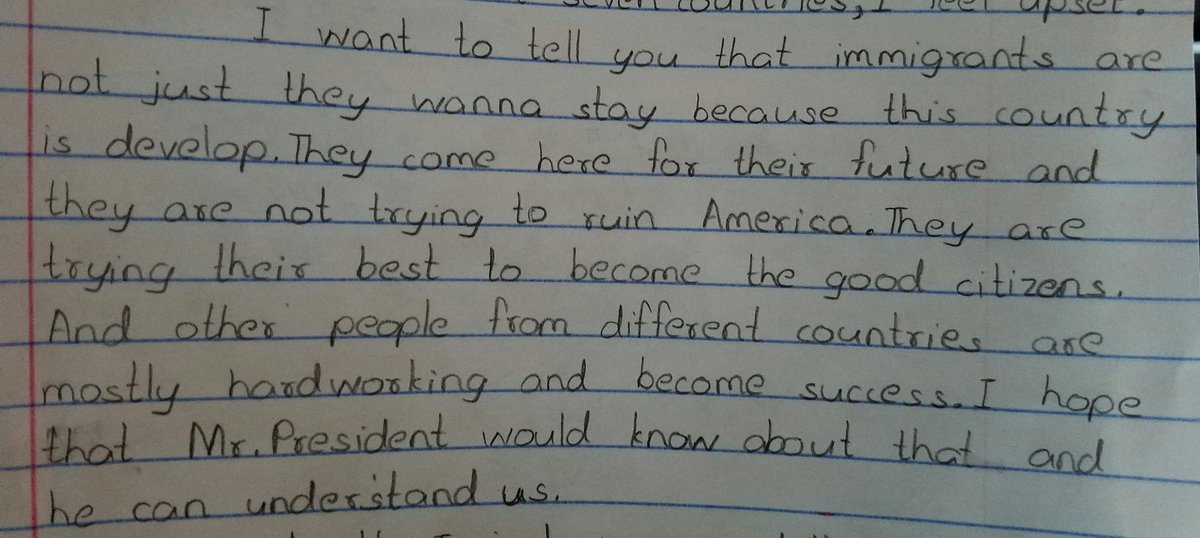 seven countries, I feel upset.
I want to tell you that immigrants are
not just they wanna stay because this country
is develop. They come here for their future and
they are not trying to ruin America. They are
trying their best to become the good citizens.
And other people from different countries are
mostly hardworking and become success. I hope
that Mr. President would know about that and
he can understand us.